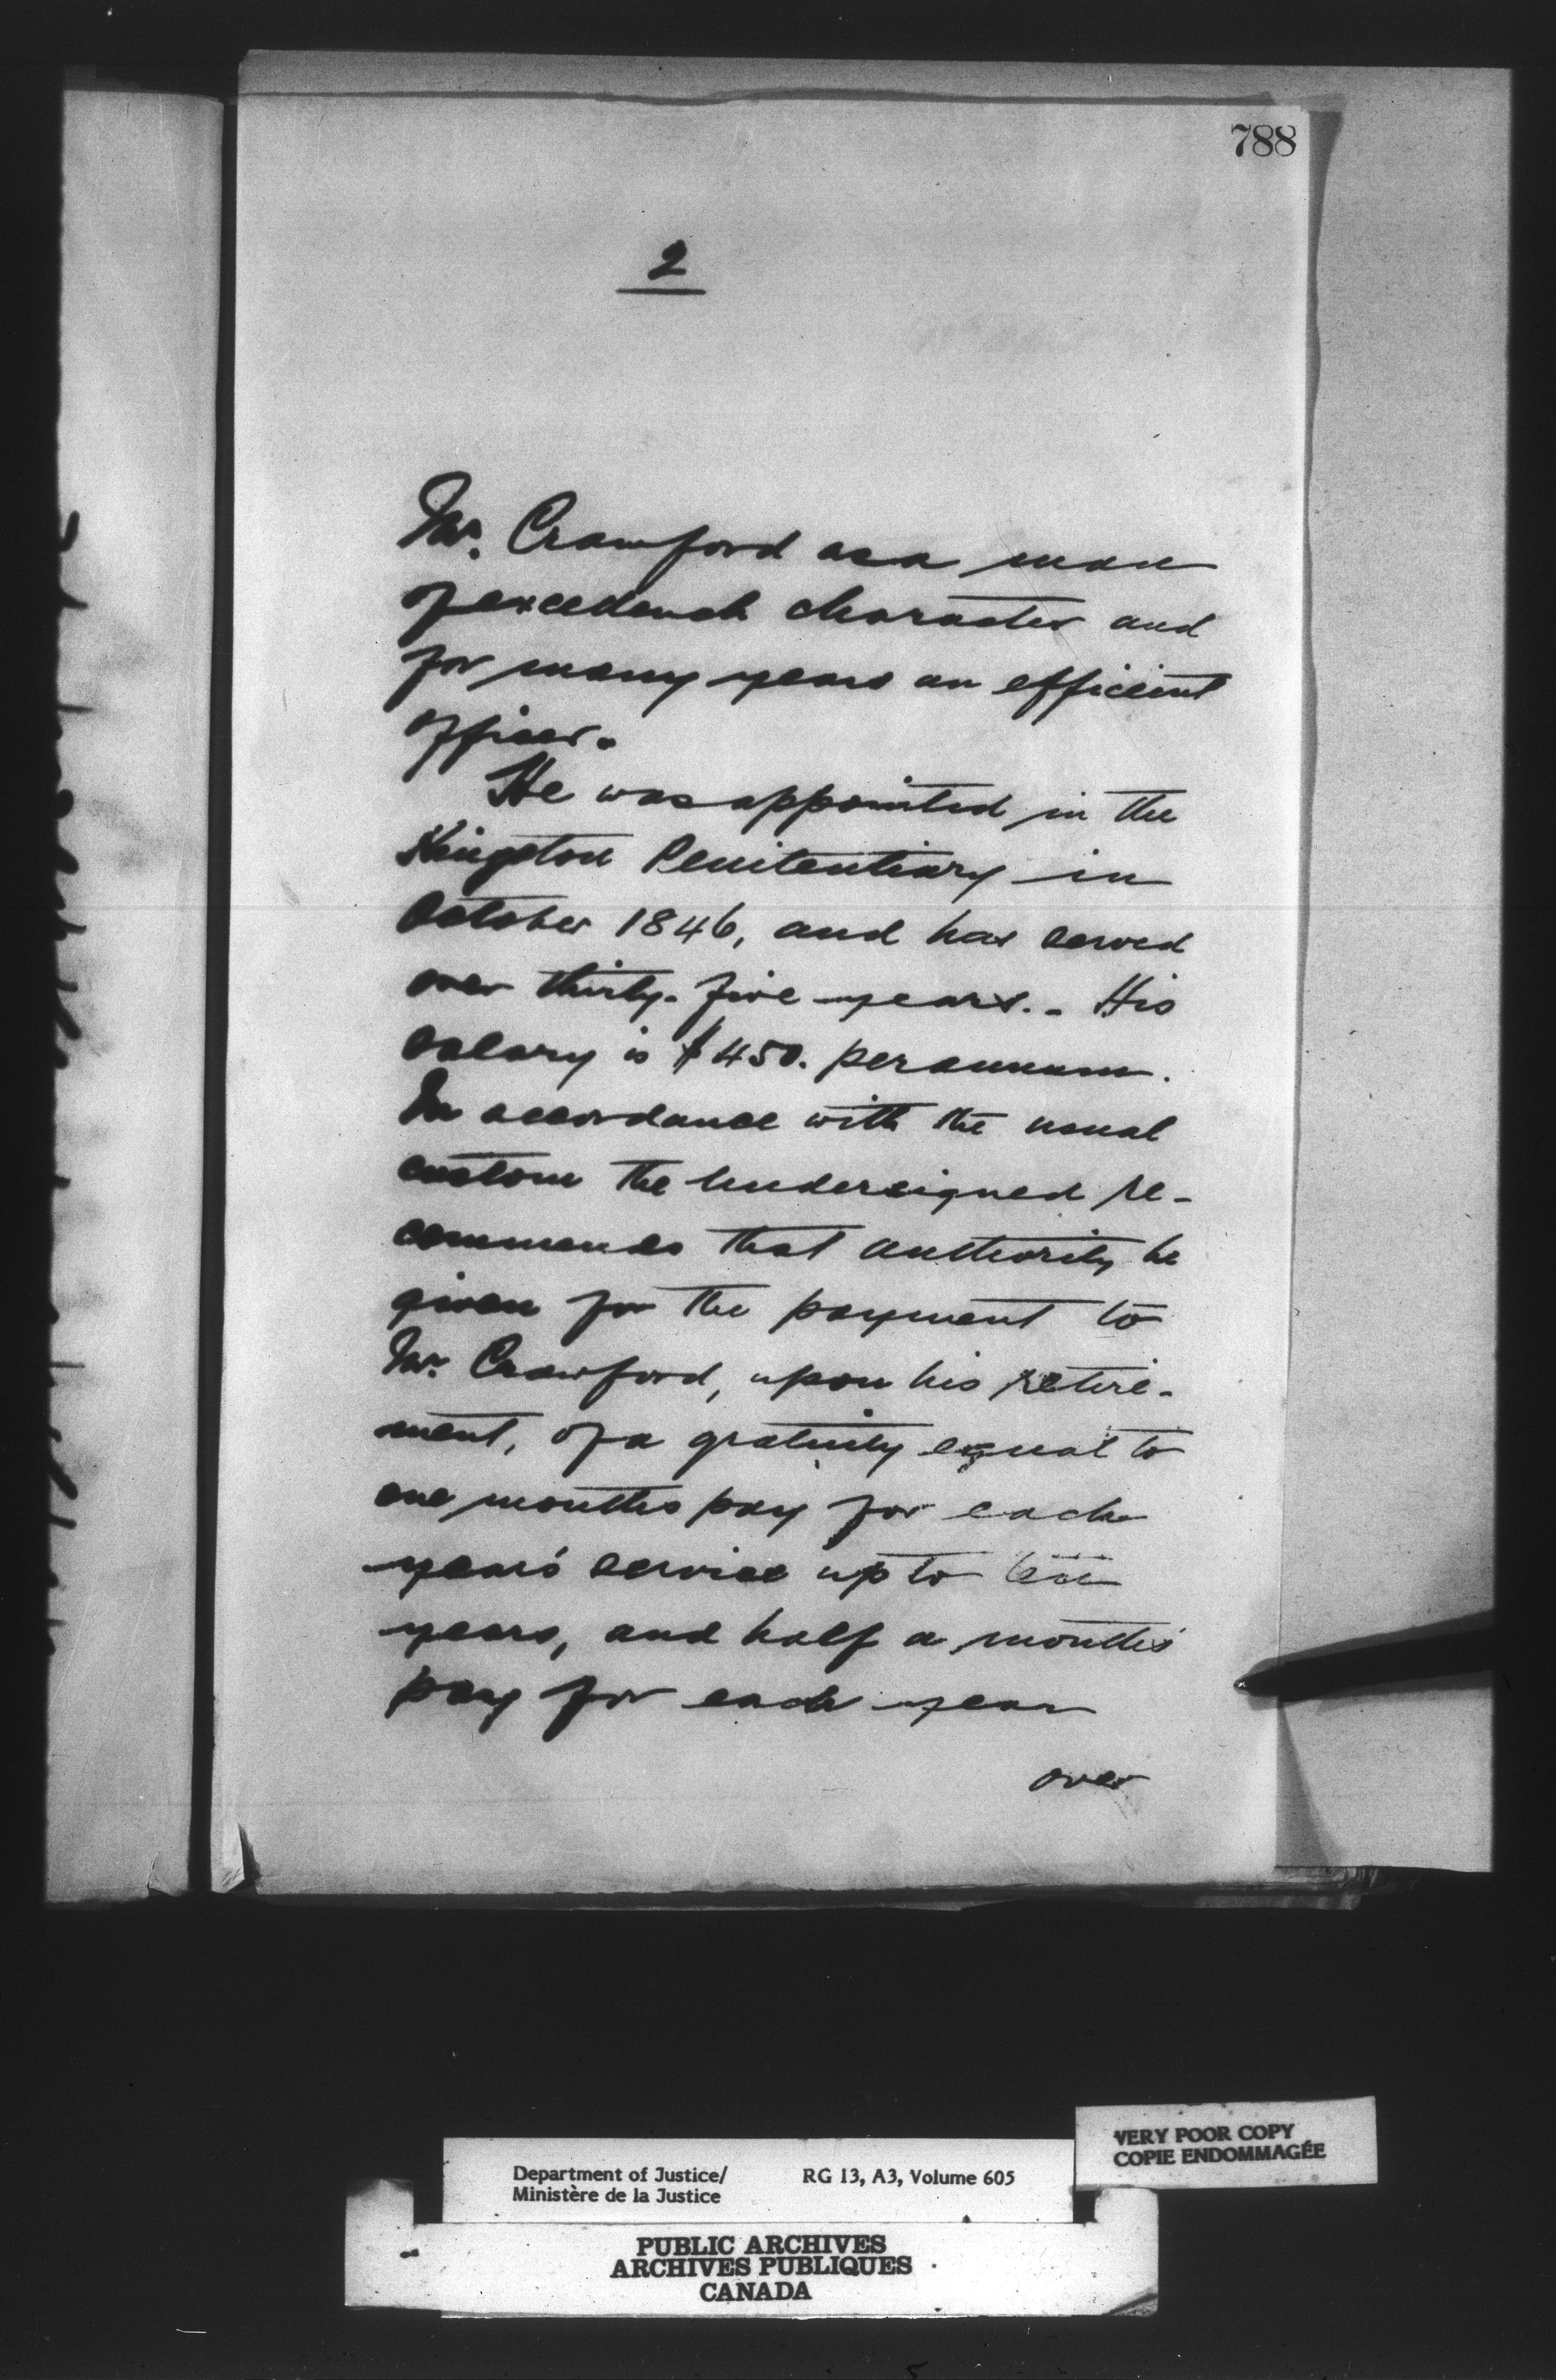 788
2
Mr. Crawford as a man
of excellent character and
for many years an efficient
officer.
He was appointed in the
Kingston Penitentiary in
October 1846, and has served
over thirty-five years. - His
salary is $450. per annum.
In accordance with the usual
custom the Undersigned re-
commends that authority be
given for the payment to
Mr. Crawford, upon his retire-
ment, of a gratuity equal to
one months pay for each
year's service up to ten
years, and half a month's
pay for each year
over
VERY POOR COPY
COPIE ENDOMMAGÉE
Department of Justice/ RG 13, A3, Volume 605
Ministère de la Justice
PUBLIC ARCHIVES
ARCHIVES PUBLIQUES
CANADA